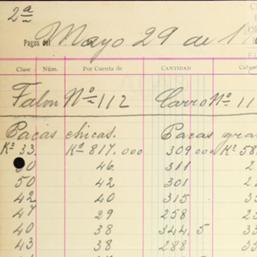 2ª
Pagas del Mayo 29 de 1
Clase Núm. Por Cuenta de CANTIDAD
Falon Nº 112 Carro Nº 11
Pacas chicas. Pacas gra
Kº 33. Kº 817.000 309.000 Kº 58
50 46 311 2
50 42 301 2
42 40 315
47 29 258
40 38 344.5
43 38 288